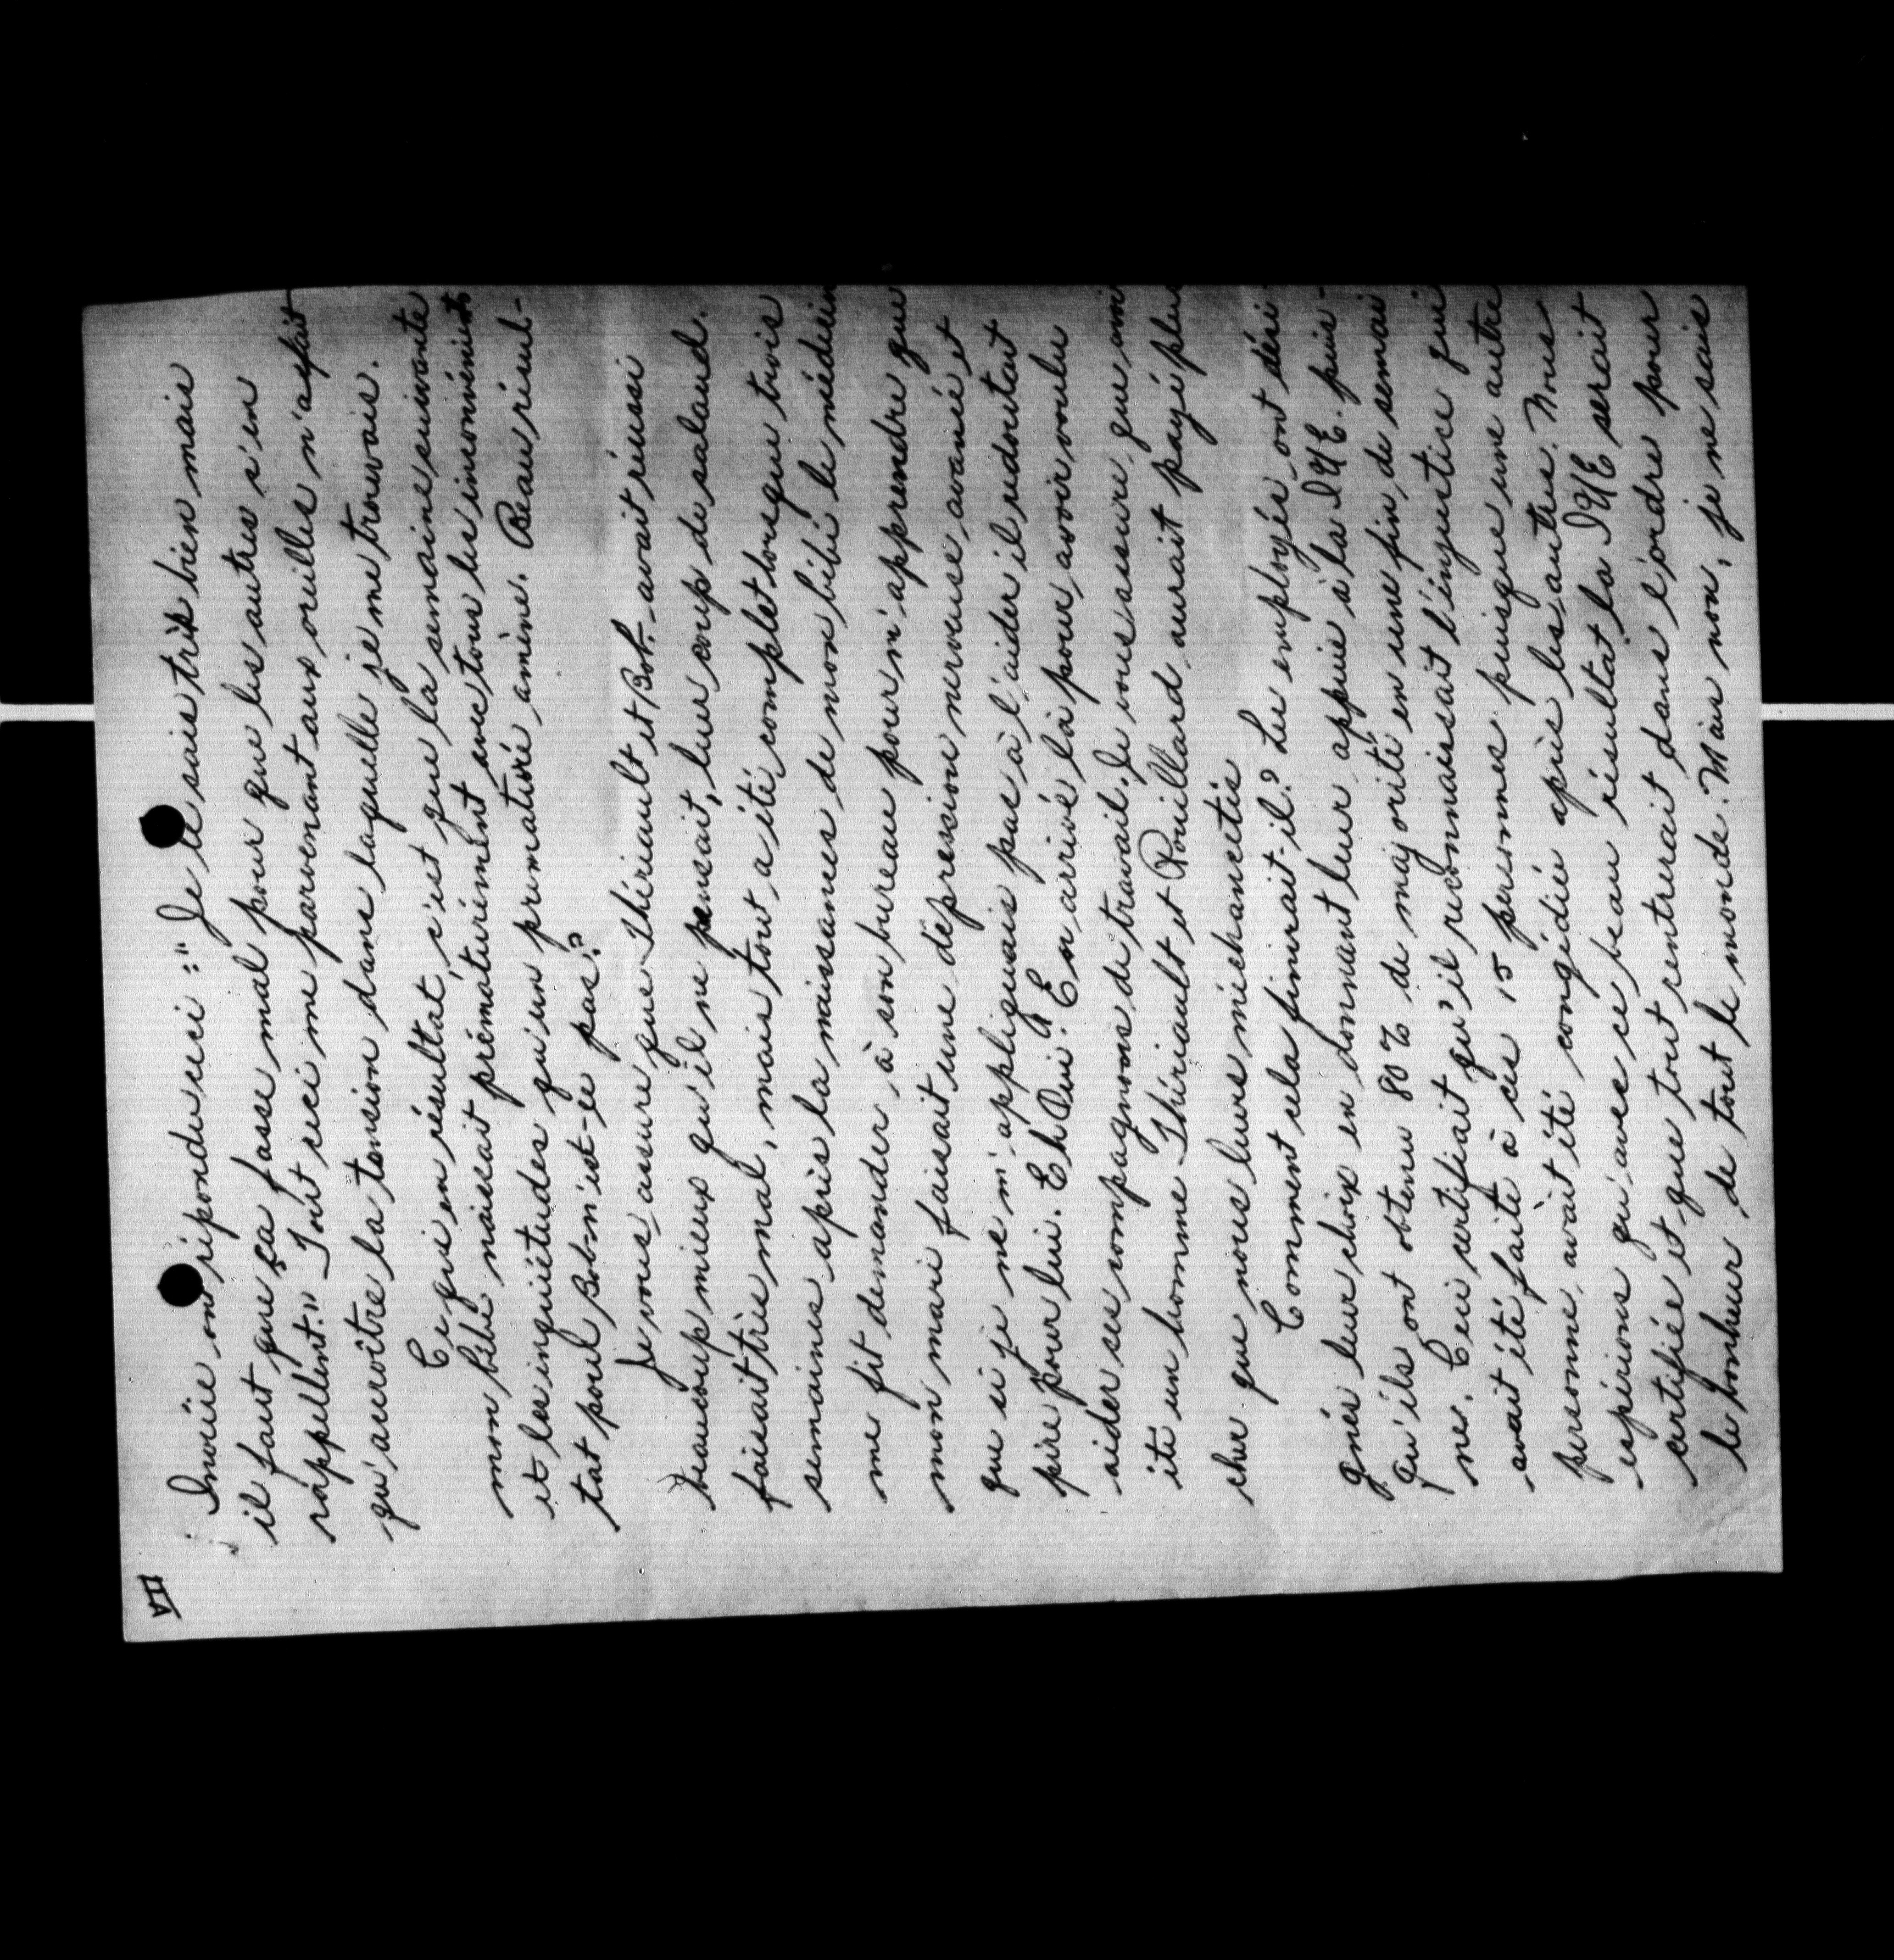 VII
Inouïe on répondu ceci :" Je le sais très bien mais
il faut que ça fasse mal pour que les autres s'en
rappellent." Tout ceci me parvenant aux oreilles n'a fait
qu'accroître la tension dans laquelle je me trouvais.
Ce qui en résultat, c'est que la semaine suivante
mon bébé naissait prématurément avec tous les inconvénients
et les inquiétudes qu'un prématuré amène. Beau résul-
tat pour Bob n'est-ce pas?
Je vous assure que Thériault et Bob. avait réussi
beaucoup mieux qu'il ne pensait, leur coup de salaud.
faisait très mal, mais tout a été complet lorsque trois
semaines après la naissances de mon bébé le médecin
me fit demander à son bureau pour m'apprendre que
mon mari faisait une dépression nerveuse avancée et
que si je ne m'appliquais pas à l'aider il redoutait
pire pour lui. Eh Oui! En arrivé là pour avoir voulu
aider ses compagnons de travail. Je vous assure que
ite un homme Thériault et Rouillard aurait payé plus
cher que nous leurs méchancetés
Comment cela finirait-il? Les employés ont dési-
gnés leur choix en donnant leur appuie à la I.U.E. puis-
qu'ils ont obtenu 80% de majorité en une fin de semai
ne. Ceci certifiait qu'il reconnaissait l'injustice qui
avait été faite à ces 15 personnes puisque une autre
personne avait été congédiée après les autres. Nous
espérions qu'avec ce beau résultat la IUE serait
certifiée et que tout rentrerait dans l'ordre pour
le bonheur de tout le monde. Mais non, je ne sais